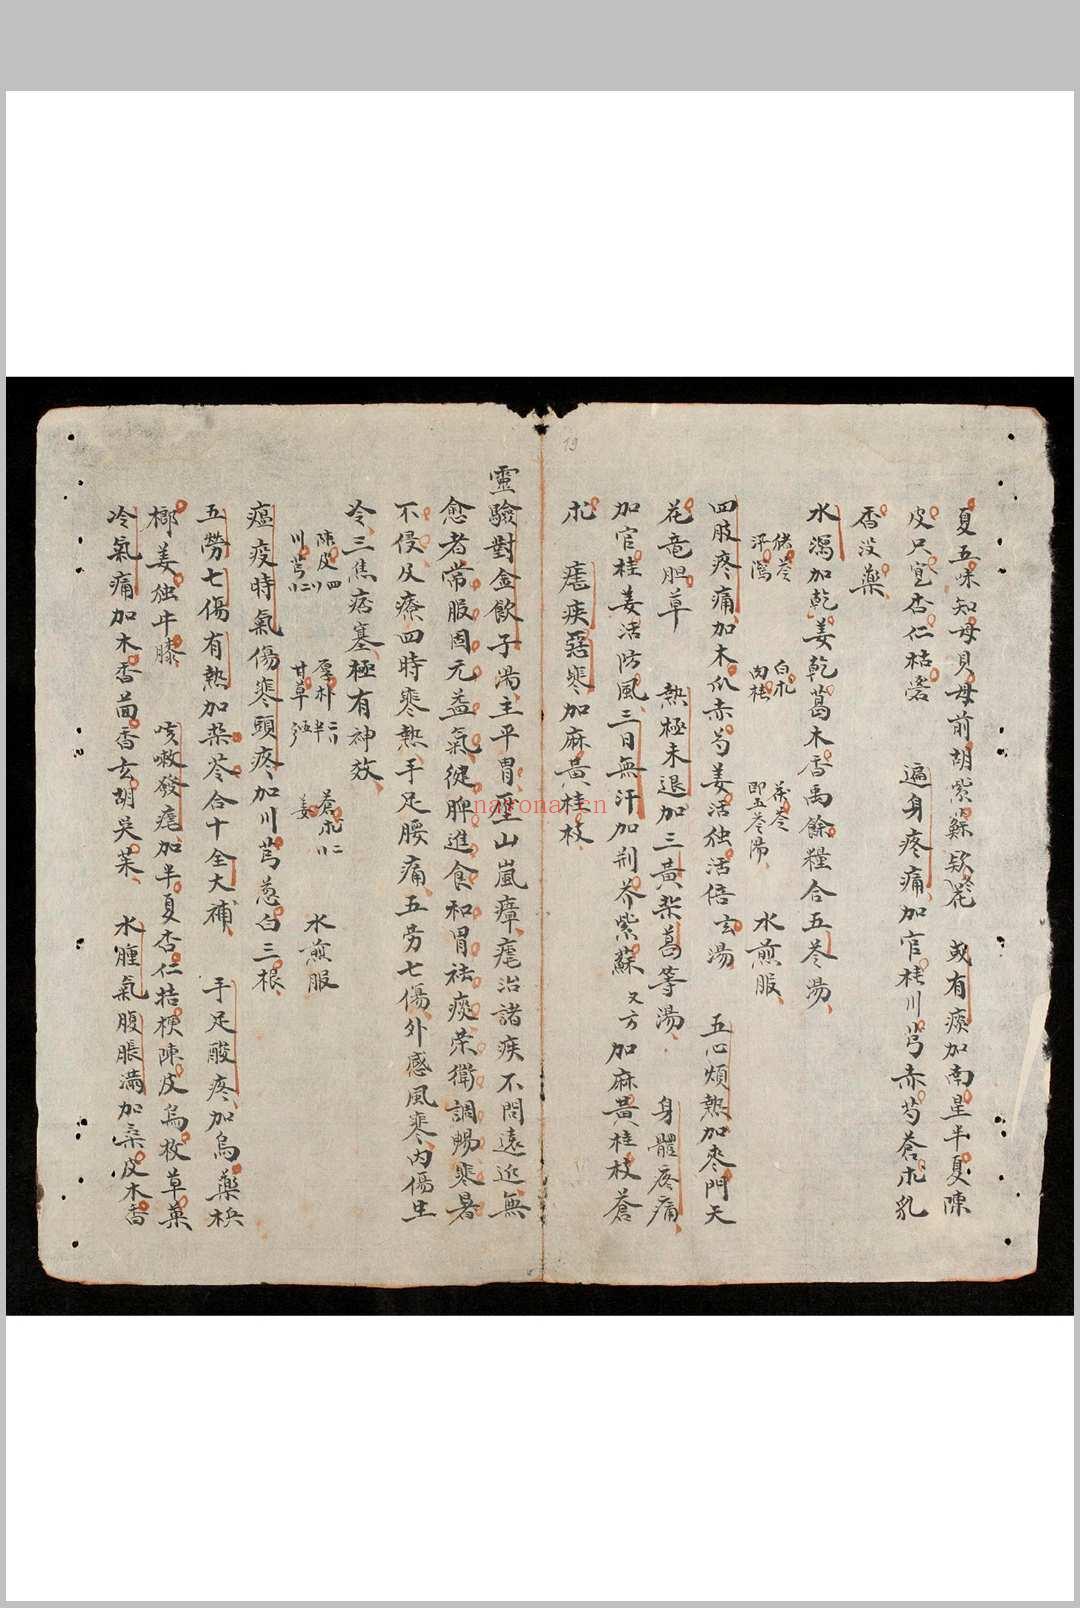 19
夏五味知母貝母前胡紫蘇欵花 或有痰加南星半夏陳
皮只宽杏仁桔 遍身疼痛加官桂川芎赤芍蒼朮乳
香没藥
水瀉加乾姜乾葛木香禹餘糧合五苓湯
猪苓 白朮 茯苓
澤瀉 肉桂 即五苓湯 水煎服
四肢疼痛加木瓜赤芍姜活独活倍玄湯 五心煩熱加麥門天
花竜胆草 熱極未退加三黃柴葛等湯 身體疼痛
加官桂姜活防風三日無汗加荆芥紫蘇 又方 加麻黃桂枝蒼
朮 瘧疾惡寒加麻黃桂枝
靈驗對金飲子湯主平胃至山嵐瘴瘧治諸疾不問遠近無
愈者常服固元益氣健脾進食和胃祛痰荣衛調暢寒暑
不侵及療四時寒熱手足腰痛五劳七傷外感風寒内傷生
冷三焦痞塞極有神效
陳皮四 厚朴 蒼朮
川芎 甘草 姜 水煎服
瘟疫時氣傷寒頭疼加川芎葱白三根
五勞七傷有熱加柴苓合十全大補 手足酸疼加烏藥梹
榔姜独牛膝 咳嗽發瘧加半夏杏仁桔梗陳皮烏枚草菓
冷氣痛加木香茴香玄胡吴茱 水腫氣腹脹滿加桑皮木香
nayona.cn